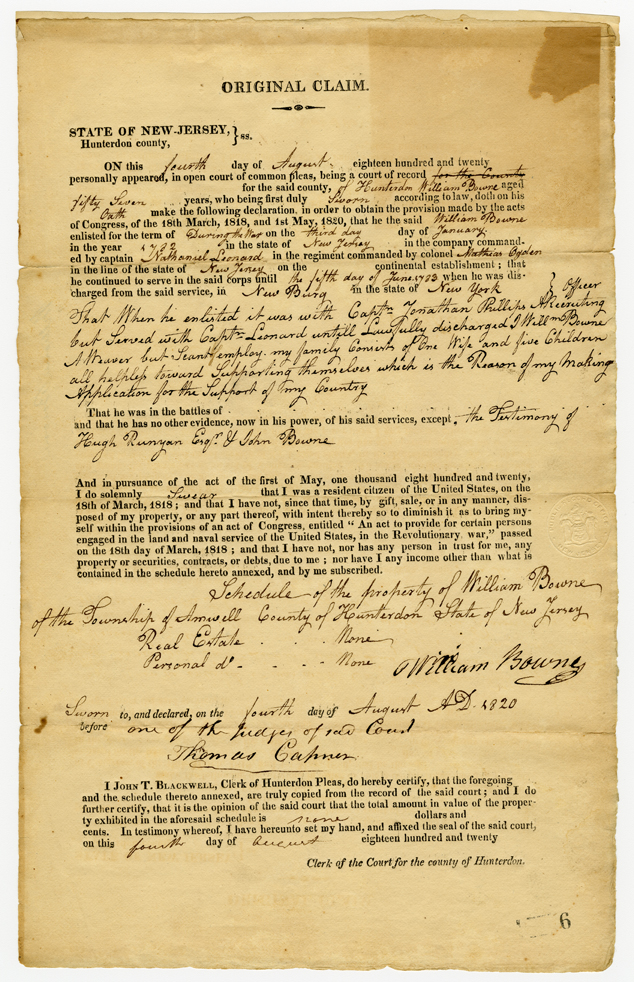 ORIGINAL CLAIM.
STATE OF NEW-JERSEY, } ss.
Hunterdon county,
ON this fourth day of August eighteen hundred and twenty
personally appeared, in open court of common pleas, being a court of record for the County
for the said county, of Hunterdon William Bowne aged
fifty Seven years, who being first duly Sworn according to law, doth on his
Oath make the following declaration, in order to obtain the provision made by the acts
of Congress, of the 18th March, 1818, and 1st May, 1820, that he the said William Bowne
enlisted for the term of During the War on the third day day of January
in the year 1782 in the state of New Jersey in the company command-
ed by captain Nathaniel Leonard in the regiment commanded by colonel Mathias Ogden
in the line of the state of New Jersey on the continental establishment; that
he continued to serve in the said corps until the fifth day of June 1783 when he was dis-
charged from the said service, in New Burg in the state of New York } Officer
That When he enlisted it was with Captn Jonathan Phillips A Recruiting
but Served with Captn Leonard untill Lawfully discharged I William Bowne
A Weaver but Scant of employ. my family Consists of One Wife and five Children
all helpless toward Supporting themselves which is the Reason of my Making
Application for the Support of my Country
That he was in the battles of
and that he has no other evidence, now in his power, of his said services, except the Testimony of
Hugh Runyan Esqr. & John Bowne
And in pursuance of the act of the first of May, one thousand eight hundred and twenty,
I do solemnly Swear that I was a resident citizen of the United States, on the
18th of March, 1818; and that I have not, since that time, by gift, sale, or in any manner, dis-
posed of my property, or any part thereof, with intent thereby so to diminish it as to bring my-
self within the provisions of an act of Congress, entitled "An act to provide for certain persons
engaged in the land and naval service of the United States, in the Revolutionary war," passed
on the 18th day of March, 1818; and that I have not, nor has any person in trust for me, any
property or securities, contracts, or debts, due to me; nor have I any income other than what is
contained in the schedule hereto annexed, and by me subscribed.
Schedule of the property of William Bowne
of the Township of Amwell County of Hunterdon State of New Jersey
Real Estate . . None
Personal do - . - None
William Bowne
Sworn to, and declared, on the fourth day of August AD. 1820
before one of the Judges of said Court
Thomas Capner
I JOHN T. BLACKWELL, Clerk of Hunterdon Pleas, do hereby certify, that the foregoing
and the schedule thereto annexed, are truly copied from the record of the said court; and I do
further certify, that it is the opinion of the said court that the total amount in value of the proper-
ty exhibited in the aforesaid schedule is none dollars and
cents. In testimony whereof, I have hereunto set my hand, and affixed the seal of the said court,
on this fourth day of august eighteen hundred and twenty
Clerk of the Court for the county of Hunterdon.
6